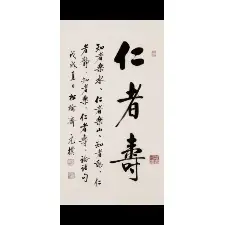 仁者壽
知者樂水、仁者樂山、知者動、仁
者靜、知者樂、仁者壽、論語句
戊戌夏